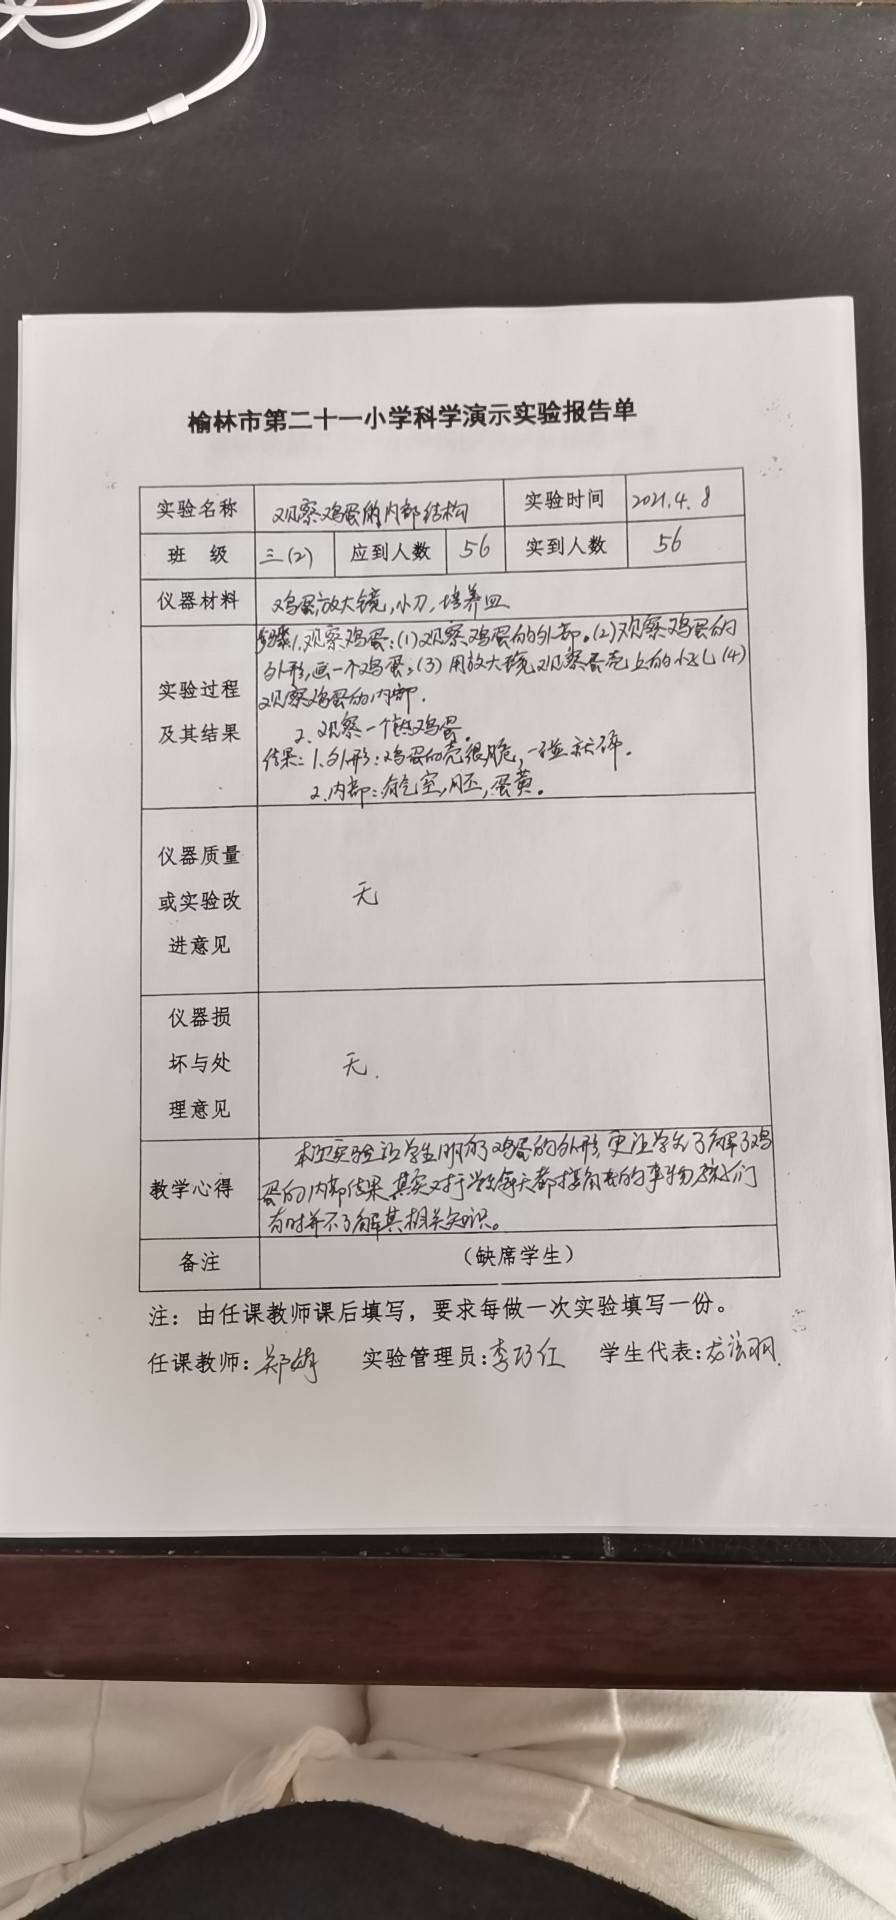 榆林市第二十一小学科学演示实验报告单
实验名称 观察鸡蛋的内部结构 实验时间 2021.4.8
班 级 三(2) 应到人数 56 实到人数 56
仪器材料 鸡蛋,放大镜,小刀,培养皿
步骤:1.观察鸡蛋:(1)观察鸡蛋的外部。(2)观察鸡蛋的
外形,画一个鸡蛋;(3)用放大镜观察蛋壳上的小孔(4)
实验过程 观察鸡蛋的内部.
及其结果 2.观察一个熟鸡蛋.
结果:1.外形:鸡蛋的壳很脆,一碰就碎.
2.内部:有气室,胚,蛋黄。
仪器质量
或实验改 无
进意见
仪器损
坏与处 无.
理意见
本次实验让学生明白了鸡蛋的外形,更让学生了解了鸡
教学心得 蛋的内部结果,其实对于学生每天都接触的事物孩子们
有时并不了解其相关知识。
备注 (缺席学生)
注:由任课教师课后填写,要求每做一次实验填写一份。
任课教师:郑婷 实验管理员:李巧红 学生代表: